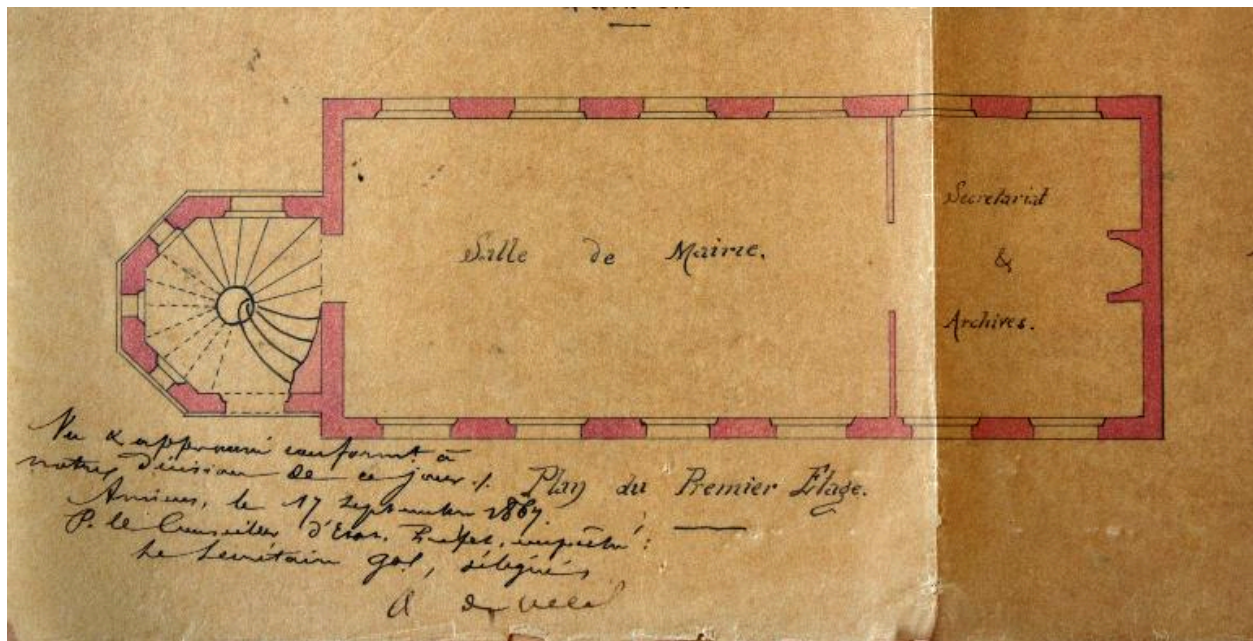 Salle de Mairie.
Secretariat
&
Archives.
Plan du Premier Etage.
Vu & approuvé conformt à
notre décision de ce jour ./.
Amiens, le 17 Septembre 1867.
P. le Conseiller d'Etat, Préfet, empêché :
Le Secrétaire gal, délégué,